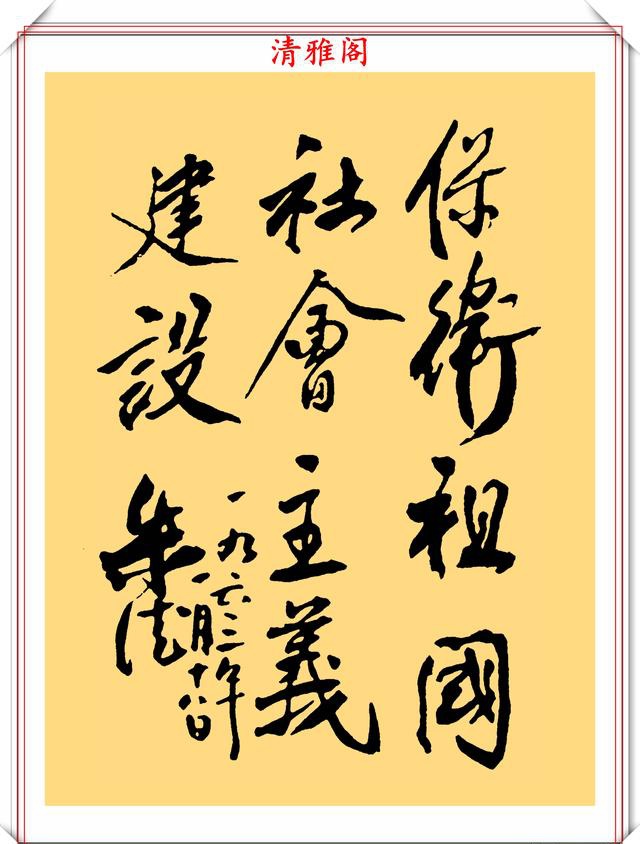 清雅阁
保衛祖國
社會主義
建設
一九六二年
一月十八日
朱德